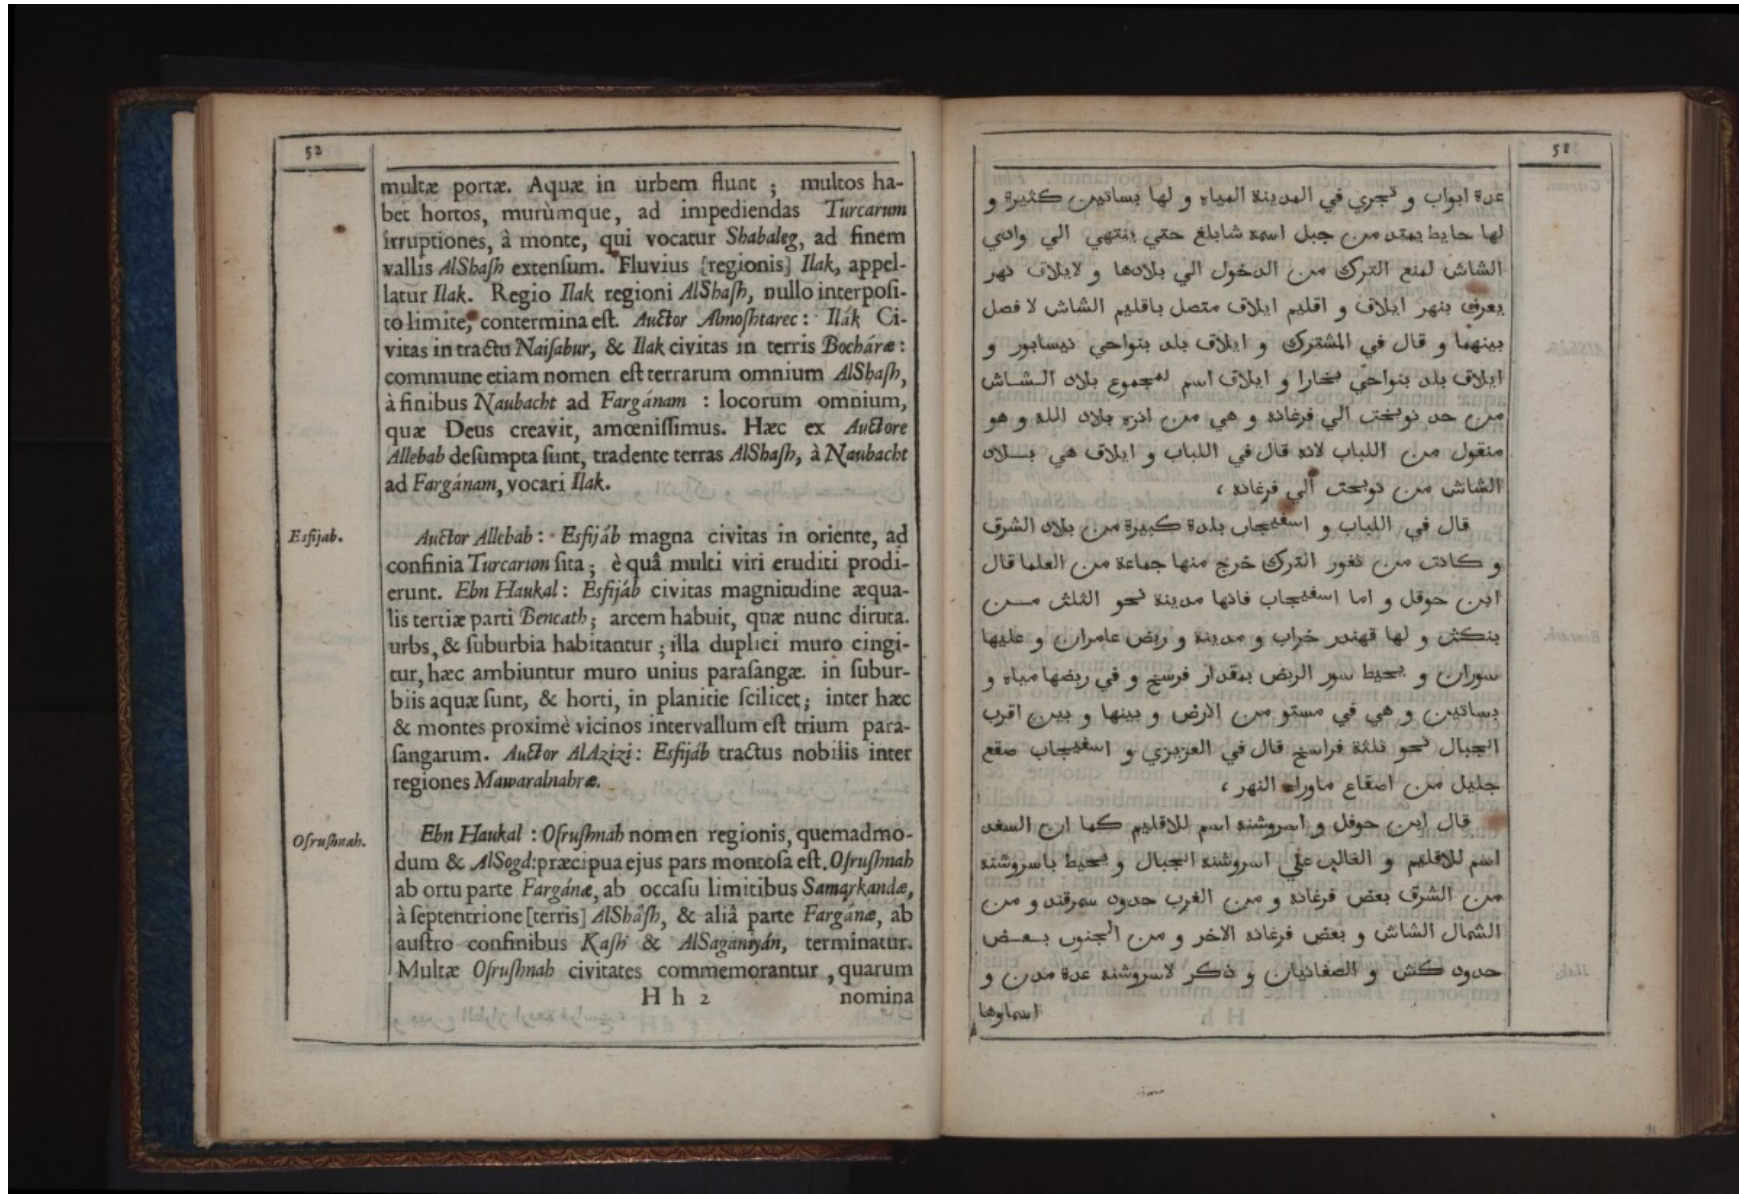 52
multæ portæ. Aquæ in urbem flunt ; multos ha-
bet hortos, murùmque, ad impediendas Turcarum
irruptiones, à monte, qui vocatur Shabaleg, ad finem
vallis AlShaſh extenſum. Fluvius [regionis] Ilak, appel-
latur Ilak. Regio Ilak regioni AlShaſh, nullo interpoſi-
to limite, contermina eſt. Auctor Almoſhtarec : Ilák Ci-
vitas in tractu Naiſabur, & Ilak civitas in terris Bocháræ :
commune etiam nomen eſt terrarum omnium AlShaſh,
à finibus Naubacht ad Fargánam : locorum omnium,
quæ Deus creavit, amœniſſimus. Hæc ex Auctore
Allebab deſumpta ſunt, tradente terras AlShaſh, à Naubacht
ad Fargánam, vocari Ilak.
Esfijab.
Auctor Allebab : Esfijáb magna civitas in oriente, ad
confinia Turcarum ſita ; è quâ multi viri eruditi prodi-
erunt. Ebn Haukal : Esfijáb civitas magnitudine æqua-
lis tertiæ parti Bencath ; arcem habuit, quæ nunc diruta.
urbs, & ſuburbia habitantur ; illa duplici muro cingi-
tur, hæc ambiuntur muro unius paraſangæ. in ſubur-
biis aquæ ſunt, & horti, in planitie ſcilicet ; inter hæc
& montes proximè vicinos intervallum eſt trium para-
ſangarum. Auctor AlAzizi : Esfijáb tractus nobilis inter
regiones Mawaralnahræ.
Oſruſhnah.
Ebn Haukal : Oſruſhnah nomen regionis, quemadmo-
dum & AlSogd: præcipua ejus pars montoſa eſt. Oſruſhnah
ab ortu parte Fargánæ, ab occaſu limitibus Samarkandæ,
à ſeptentrione [terris] AlShâſh, & aliâ parte Fargánæ, ab
auſtro confinibus Kaſh & AlSaganiyán, terminatur.
Multæ Oſruſhnah civitates commemorantur , quarum
H h 2 nomina
51
عدة ابواب و تجري في المدينة المياه و لها بساتين كثيرة و
لها حايط يمتد من جبل اسمه شابلغ حتي ينتهي الي وادي
الشاش لمنع الترك من الدخول الي بلادها و لايلاق نهر
يعرف بنهر ايلاق و اقليم ايلاق متصل باقليم الشاش لا فصل
بينهما و قال في المشترك و ايلاق بلد بنواحي نيسابور و
ايلاق بلد بنواحي بخارا و ايلاق اسم لمجموع بلاد الشاش
من حد نوبخت الي فرغانة و هي من انزه بلاد الله و هو
منقول من اللباب لانه قال في اللباب و ايلاق هي بلاد
الشاش من نوبخت الي فرغانة ،
قال في اللباب و اسفيجاب بلدة كبيرة من بلاد الشرق
و كانت من ثغور الترك خرج منها جماعة من العلما قال
ابن حوقل و اما اسفيجاب فانها مدينة نحو الثلث من
بنكث و لها قهندر خراب و مدينة و ربض عامران و عليها
سوران و يحيط سور الربض بمقدار فرسخ و في ربضها مياه و
بساتين و هي في مستو من الارض و بينها و بين اقرب
الجبال نحو ثلثة فراسخ قال في العزيزي و اسفيجاب صقع
جليل من اصقاع ماوراء النهر ،
قال ابن حوقل و اسروشنة اسم للاقليم كما ان السغد
اسم للاقليم و الغالب علي اسروشنة الجبال و يحيط باسروشنة
من الشرق بعض فرغانة و من الغرب حدود سمرقند و من
الشمال الشاش و بعض فرغانة الاخر و من الجنوب بعض
حدود كش و الصغانيان و ذكر لاسروشنة عدة مدن و
اسماوها